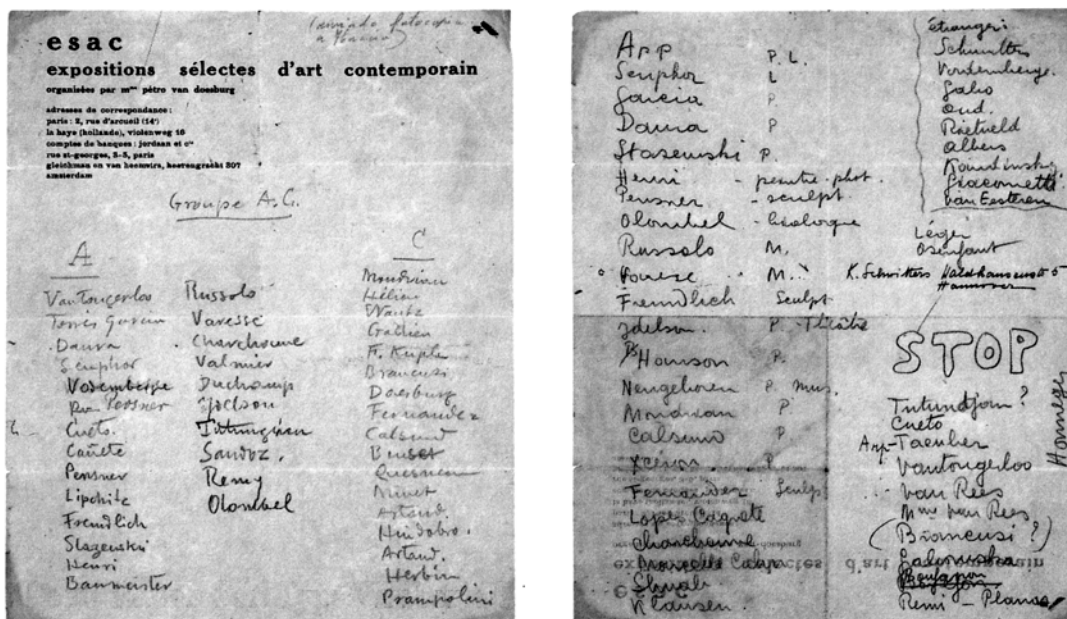 (enviado fotocopia
a
esac
expositions sélectes d'art contemporain
organisées par mme pétro van doesburg
adresses de correspondance:
paris: 2, rue d'arcueil (14e)
la haye (hollande), violenweg 10
comptes de banques: jordaan et cie
rue st-georges, 3-5, paris
gleichman en van heemstra, heerengracht 307
amsterdam
Groupe A.C.
A
Van Tongerloo
Torrès Garcia
Daura
Seuphor
Vosemberge
Cueto.
Cañete
Pevsner
Lipchitz
Freundlich
Stazenski
Henri
Baumeister
Russolo
Varesse
Charchoune
Valmier
Duchamp
Idelson
Tutungian
Sandoz.
Remy
Olombel
C
Mondrian
Hélion
Wantz
Gallien
F. Kupka
Brancusi
Doesburg
Fernandez
Calsund
Buset
Quesneu
Ninet
Artaud
Huidobro.
Artaud.
Herbin
Prampolini
Arp P. L.
Seuphor L
Garcia P
Daura P
Stasewski P.
Henri - peintre-phot.
Pevsner - sculpt.
Olombel - biologue
Russolo M.
M.
Freundlich Sculpt
Idelson. P - Théâtre
Hanson P.
Neugeboren P. Mus.
Mondrian P
Calsund P
Xcéron. P
Fernandez Sculp
Lopes Cagnete
Charchoune
Chwab
Klausen.
étranger:
Schwitters
Vordemberge.
Gabo
Oud.
Rietveld
Albers
Kandinsky
Giacometti
Van Eesteren
Léger
Osenfant
K. Schwitters Waldhausenstr 5
Hannover
STOP
Tutundjan?
Cueto
Arp-Taeuber
Vantongerloo
Van Rees
Mme Van Rees
(Brancusi?)
Remi - Planas
Honneger